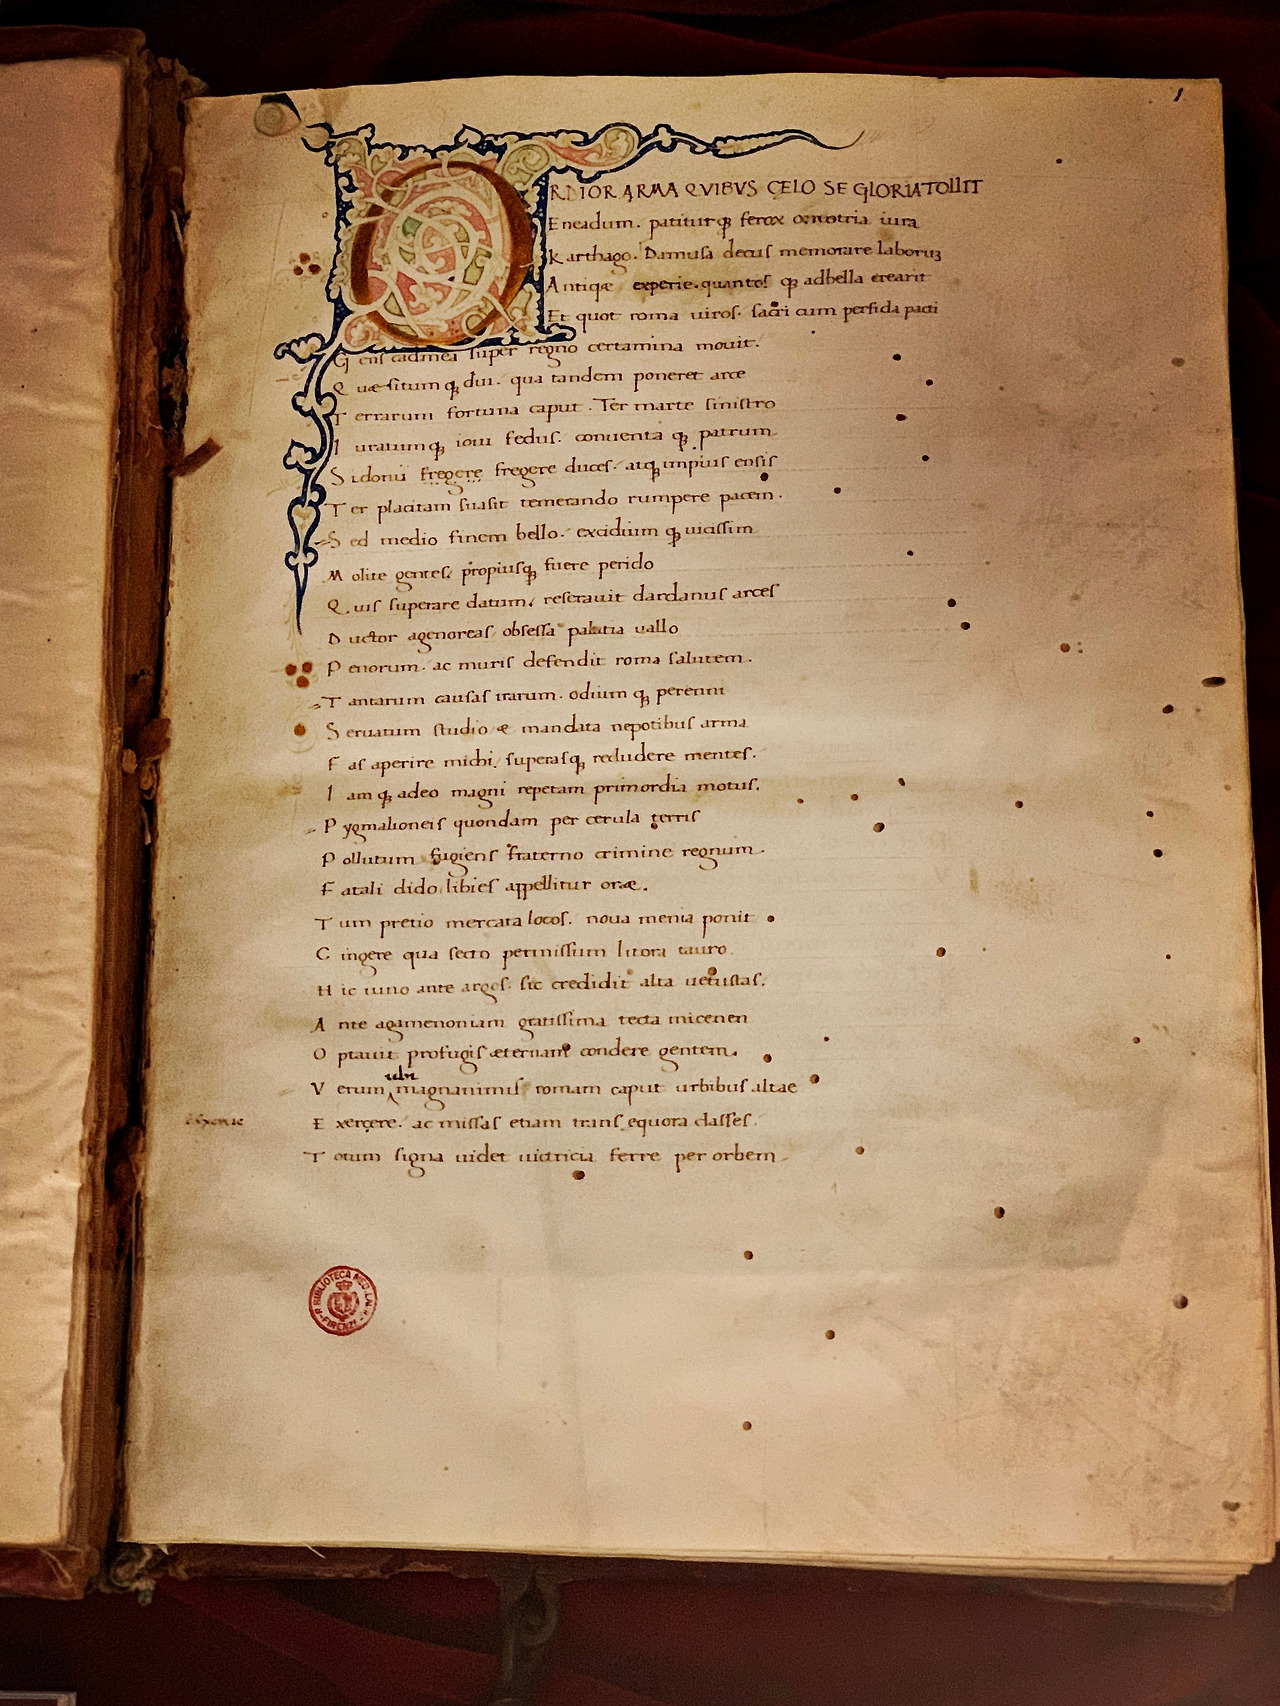 1
ORDIOR ARMA QVIBVS CELO SE GLORIA TOLLIT
Eneadum. patiturqꝫ ferox oenotria iura
Karthago. Da musa decus memorare laboruꝫ
Antiqæ experie. quantos qꝫ ad bella crearit
Et quot roma uiros. sacri cum perfida pacti
Gens cadmea super regno certamina mouit.
Quæsitum qꝫ diu. qua tandem poneret arce
Terrarum fortuna caput. Ter marte sinistro
Iuratumqꝫ ioui fedus. conuenta qꝫ patrum
Sidonii fregere fregere duces. atqꝫ impius ensis
Ter placitam suasit temerando rumpere pacem.
Sed medio finem bello. excidium qꝫ uicissim
Molite gentes. propiusqꝫ fuere periclo
Quis superare datum. reserauit dardanus arces
Ductor agenoreas obsessa palatia uallo
Penorum. ac muris defendit roma salutem.
Tantarum causas irarum. odium qꝫ perenni
Seruatum studio & mandata nepotibus arma
Fas aperire michi. superasqꝫ recludere mentes.
Iam qꝫ adeo magni repetam primordia motus.
Pygmalioneis quondam per cerula terris
Pollutum fugiens fraterno crimine regnum.
Fatali dido libies appellitur oræ.
Tum pretio mercata locos. noua menia ponit
Cingere qua secto permissum litora tauro
Hic iuno ante argos. sic credidit alta uetustas.
Ante agamenoniam gratissima tecta micenen
Optauit profugis æternam condere gentem.
ubi
Verum magnanimis romam caput urbibus altae
Exercere. ac missas etiam trans equora classes.
Totum signa uidet uictricia ferre per orbem
R. BIBLIOTECA MED. LAUR. FIRENZE